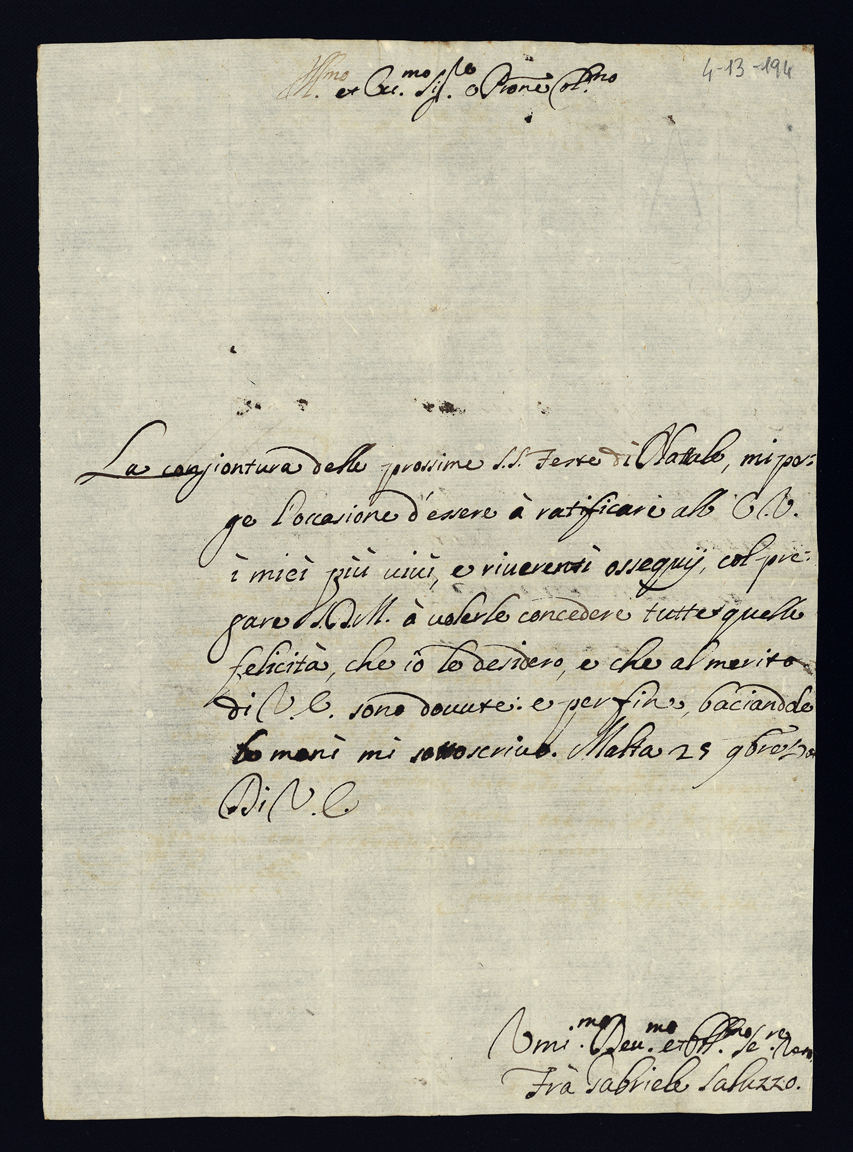 4-13-194
Ill.mo et Ecc.mo Sig.re e Prone Col.mo
La congiontura delle prossime S.S. Feste di Natale, mi por:
ge l'occasione d'essere à ratificare all' E.V.
i miei più vivi, e riverenti ossequij, col pre:
gare S.D.M. à volerle concedere tutte quelle
felicità, che io le desidero, e che al merito
di V.E. sono dovute: e per fine, baciandole
le mani mi sottoscrivo. Malta 25 9bre
Di V.E.
Umi.mo Deu.mo et Obl.mo Se.re
Frà Gabriele Saluzzo.